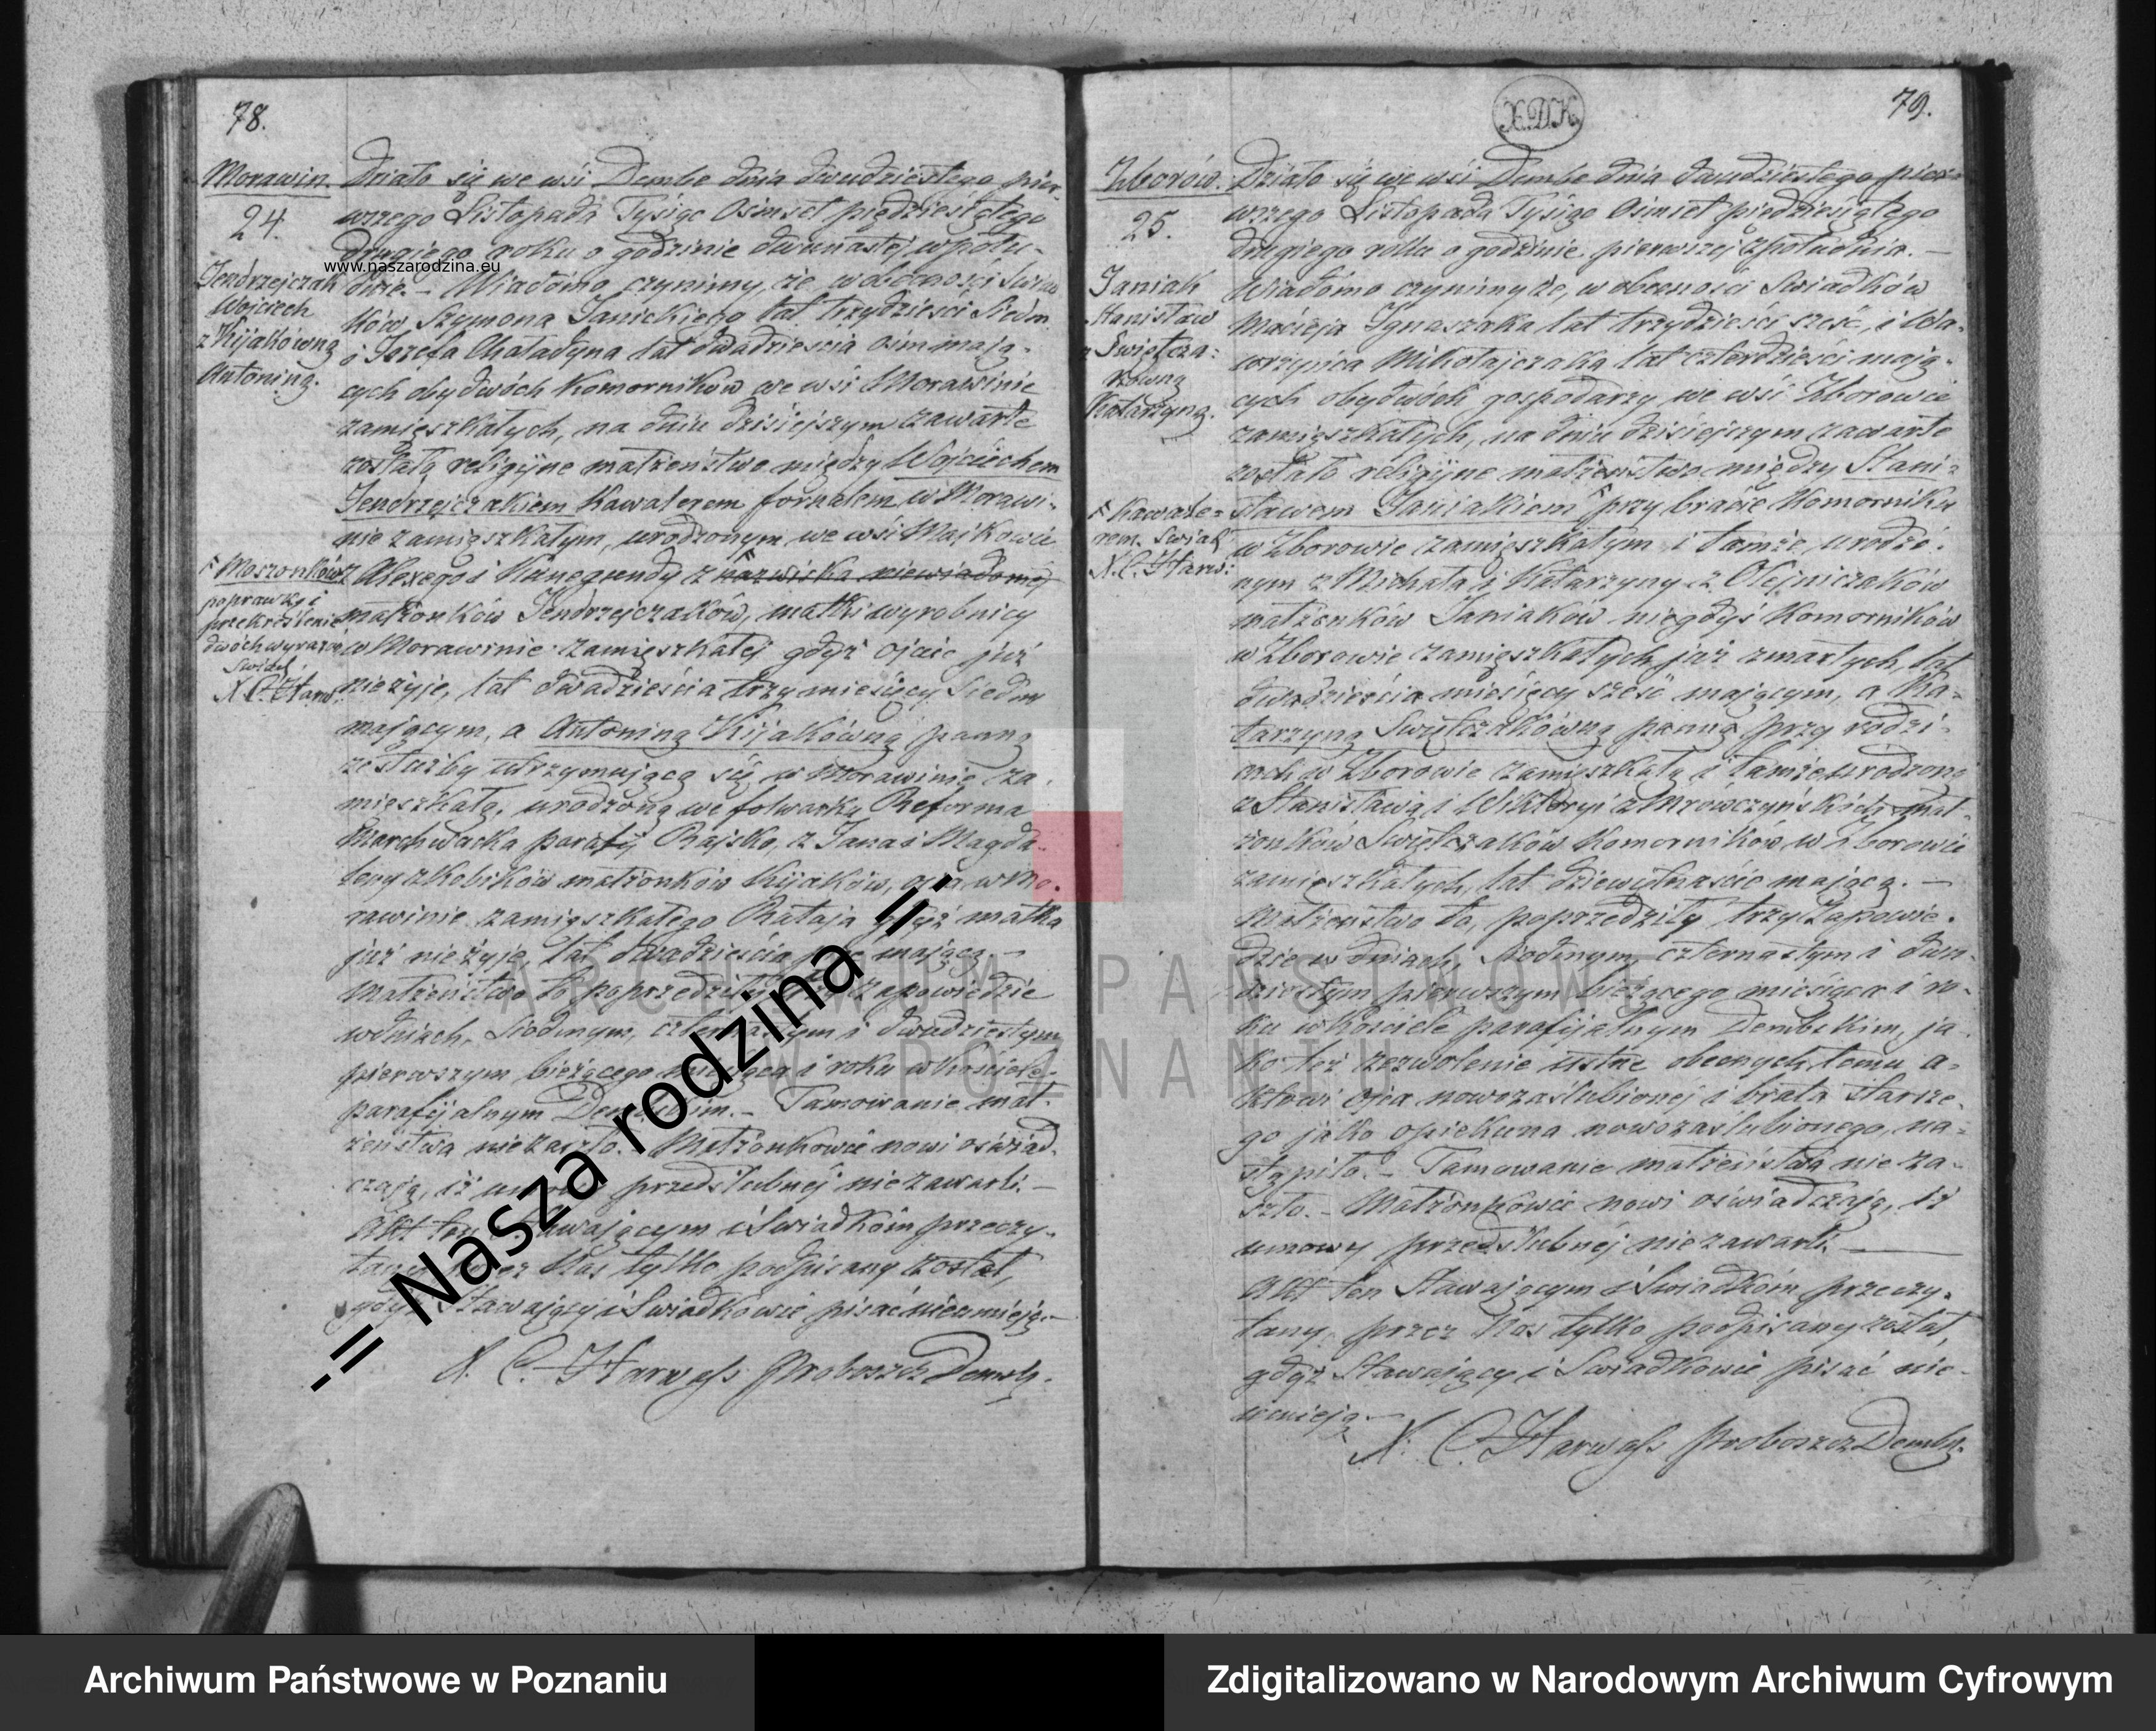 78.
Morawin.
24.
Jendrzejczak
Wojciech
z Kijakówną
Antoniną.
Działo się we wsi Dembe dnia dwudziestego pier-
wszego Listopada Tysiąc Osimset piędziesiątego
drugiego roku o godzinie dwunastej wpołu-
dnie. – Wiadomo czynimy, że w obecności Świad
ków Szymona Janickiego lat trzydzieści siedm
i Józefa Chaładyna lat dwadzieścia ośm mają-
cych obydwóch Komorników we wsi Morawinie
zamięszkałych, na dniu dzisiejszym zawarte
zostało religijne małżeństwo między Wojciechem
Jendrzejczakiem Kawalerem fornalem w Morawi-
nie zamięszkałym, urodzonym we wsi Majkowie
z Alexego i Kunegundy z nazwiska niewiadomej
małżonków Jendrzejczaków, matki wyrobnicy
w Morawinie zamięszkałej gdyż ojciec już
nieżyje, lat dwadzieścia trzy miesięcy siedm
mającym, a Antoniną Kijakówną panną
ze służby utrzymującą się w Morawinie za-
mieszkałą, urodzoną we folwarku Reforma
Marchwacka parafij Rajsko, z Jana i Magda-
leny z Kobików małżonków Kijaków, ojca w Mo-
rawinie zamięszkałego Rataja gdyż matka
już nieżyje, lat dwadzieścia mającą. –
Małżeństwo to poprzedziły trzy zapowiedzie
wdniach, siódmym, czternastym i dwudziestym
pierwszym bieżącego miesiąca i roku w kościele
parafijalnym Dembskim. – Tamowanie mał-
żeństwa nie zaszło. – Małżonkowie nowi oświad-
czają, iż umowy przedślubnej niezawarli. –
Akt ten stawającym i Świadkom przeczy-
tany przez Nas tylko podpisany został,
gdyż Stawający i Świadkowie pisać nieumieją. –
X. C. Harwass Proboszcz Demb.
Moszonków
poprawki i
przekreślenie
dwóch wyrazów
Świad.
X. C. Harw.
www.naszarodzina.eu
-= Nasza rodzina =-
X.D.K.
79.
Zborów.
25.
Janiak
Stanisław
z Świętcza-
kówną
Katarzyną.
Działo się we wsi Dembe dnia dwudziestego pier-
wszego Listopada Tysiąc Osimset piędziesiątego
drugiego roku o godzinie pierwszej z południa. –
Wiadomo czynimy że, w obecności Świadków
Macieja Ignaszaka lat trzydzieści sześć, i Wa-
wrzyńca Mikołajczaka lat czterdzieści mają-
cych obydwóch gospodarzy we wsi Zborowie
zamięszkałych, na dniu dzisiejszym zawarte
zostało religijne małżeństwo między Stani-
sławem Janiakiem przy bracie Komorniku
w Zborowie zamięszkałym i tamże urodzo-
nym z Michała i Katarzyny z Olejniczaków
małżonków Janiaków niegdyś Komorników
w Zborowie zamięszkałych już zmarłych, lat
dwadzieścia miesięcy sześć mającym, a Ka-
tarzyną Świętczakówną panną przy rodzi-
cach w Zborowie zamięszkałą i tamże urodzoną
z Stanisława i Wiktoryi z Mrówczyńskich mał-
żonków Świętczaków Komorników w Zborowie
zamięszkałych, lat dziewiętnaście mającą. –
Małżeństwo to, poprzedziły trzy Zapowie-
dzie w dniach, siódmym, czternastym i dwu-
dziestym pierwszym bieżącego miesiąca i ro-
ku w Kościele parafijalnym Dembskim, ja-
ko też zezwolenie ustne obecnych temu a-
ktowi ojca nowozaślubionej i brata starsze-
go jako opiekuna nowozaślubionego, na-
stąpiło. – Tamowanie małżeństwa nie za-
szło. – Małżonkowie nowi oświadczają, iż
umowy przedślubnéj niezawarli. –
Akt ten Stawającym i Świadkom przeczy-
tany przez Nas tylko podpisany został,
gdyż Stawający i Świadkowie pisać nie-
umieją. –
X. C. Harwass Proboszcz Demb.
Kawale-
rem. Świad.
X. C. Harw:
ARCHIWUM PAŃSTWOWE
W POZNANIU
Archiwum Państwowe w Poznaniu
Zdigitalizowano w Narodowym Archiwum Cyfrowym